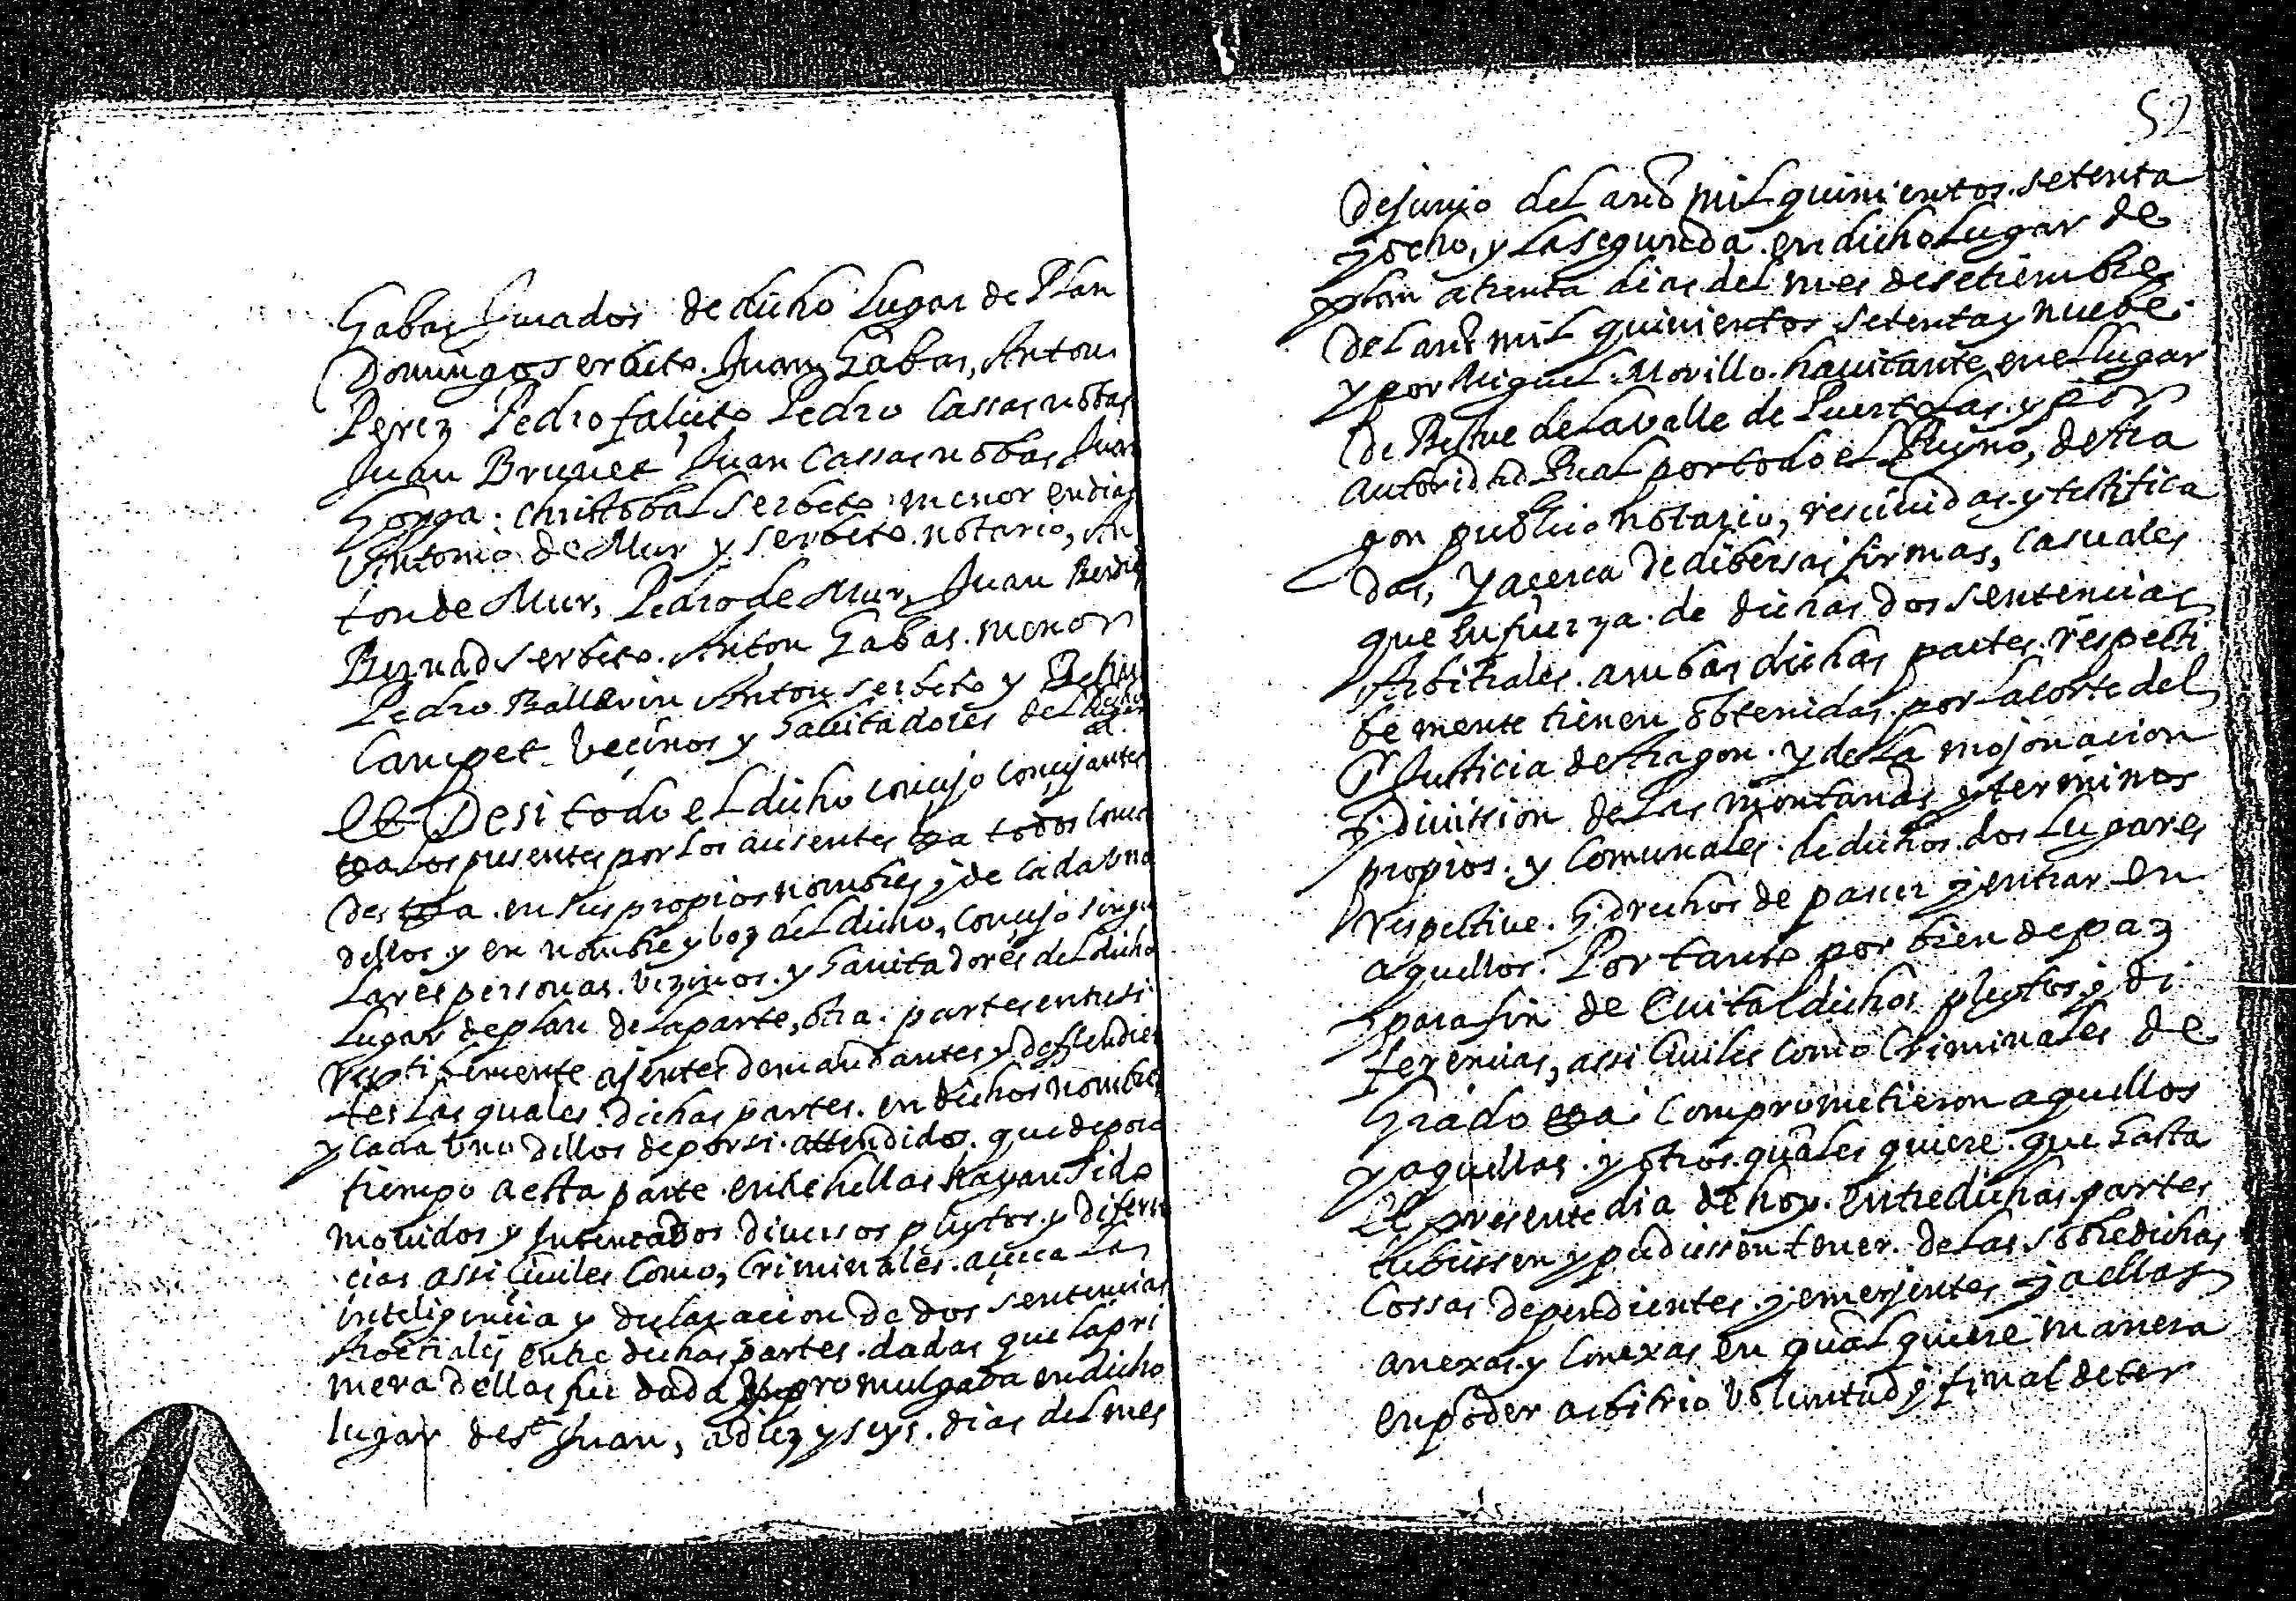 Gabas Jurados de dicho lugar de Plan
Domingo Serbeto. Juan Gabas, Anton
Perez Pedro falceto Pedro Cassasnobas
Juan Brunet Juan Cassasnobas Juan
Gorga. Christobal Serbeto menor endias
Antonio de Mur y Serbeto. notario, An
ton de Mur, Pedro de Mur, Juan
Bernad Serbeto. Anton Gabas. menor
Pedro Ballarin Anton Serbeto y
Campet Veçinos y Hauitadores del
Desi todo el dicho conçejo conçejantes
los presentes por los ausentes todos
en sus propios nombres y de cada uno
dellos y en nombre y boz del dicho, conçejo singu
lares personas. bezinos. y hauitadores del dicho
lugar de plan de la parte, otra. partes entresi
ajentes demandantes y deffendien
tes las quales. dichas partes. en dichos nombres
y cada uno dellos deporsi. attendido. que de poco
tiempo a esta parte. entre hellas hayan sido
mouidos y Intentados diuersos pleytos. y diferen
cias assi çiuiles como, criminales. açerca la
inteligencia y declaracion de dos sentencias
Arbitrales entre dichas partes. dadas que la pri
mera dellas fue dada promulgada en dicho
lugar de Sn Juan, a diez y seys. dias del mes
52
de junio del año mil quinientos. setenta
y ocho, y la segunda. en dicho Lugar de
plan a trenta dias del mes de setiembre
del año mil quinientos setenta y nuebe.
y por Miguel. Morillo. hauitante en el lugar
de Bestue de la valle de Puertolas. y por
autoridad Real por todo el Reyno, de Ara
gon publico notario, resciuidas. y testifica
das, y acerca de dibersas firmas, casuales
que en fuerza. de dichas dos sentencias
Arbitrales. ambas dichas partes. respecti
bemente tienen obtenidas. por la corte del
Justicia de Aragon. y de la mojonacion
y diuission de las montañas y terminos
propios. y Comunales. de dichos. dos lugares
respectiue. y drechos de pacer y entrar en
aquellos. Por tanto por bien de paz
y para fin de Euitar dichos pleytos. y di
ferencias, assi çiuiles como Criminales de
Grado comprometieron aquellos
y aquellas. y otros. quales quiere. que hasta
El presente dia de hoy. entre dichas partes
tubiessen y pudiessen tener. de las sobredichas
Cossas dependientes. y emerjentes y a ellas
anexas. y conexas en qualquiere manera
en poder arbitrio Voluntad y final deter